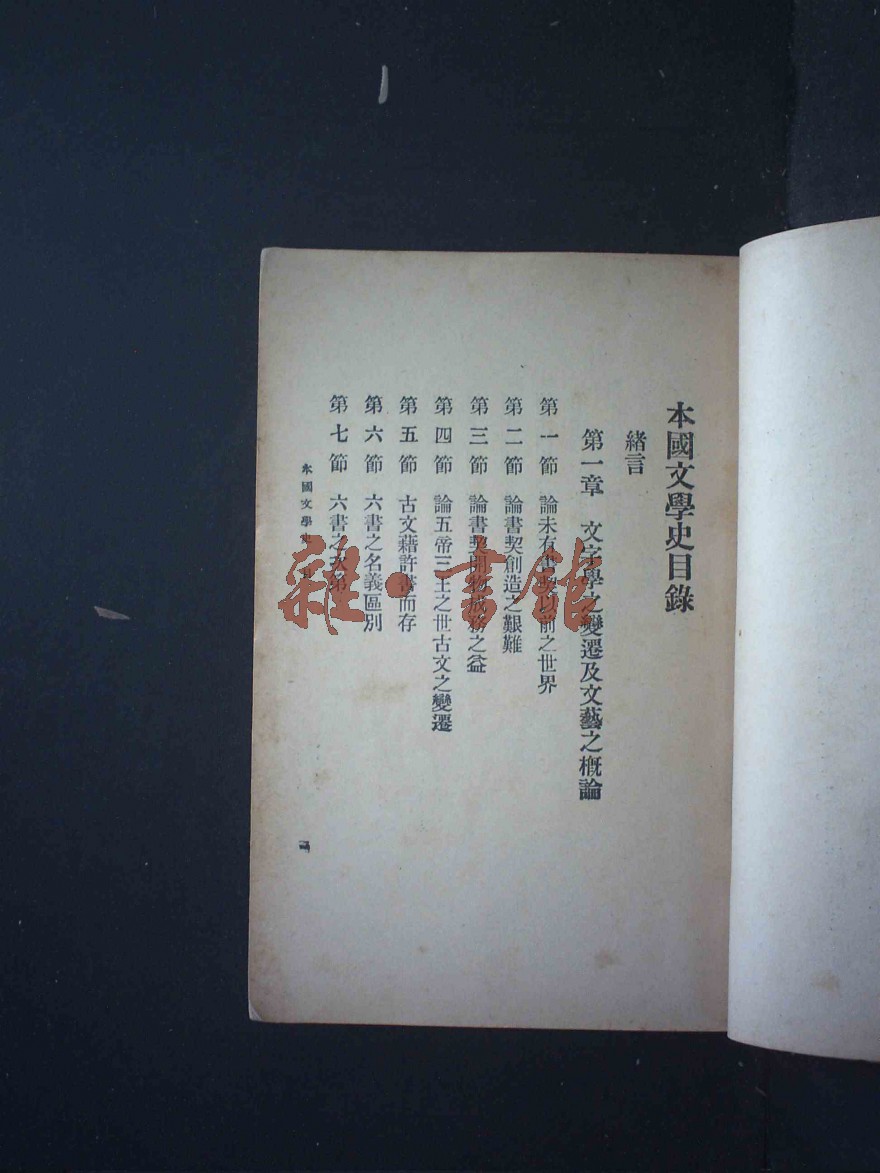 本國文學史目錄
緒言
第一章 文字學之變遷及文藝之概論
第一節 論未有書契以前之世界
第二節 論書契創造之艱難
第三節 論書契開物成務之益
第四節 論五帝三王之世古文之變遷
第五節 古文藉許書而存
第六節 六書之名義區別
第七節 六書之次第
本國文學史 目
雜·書館